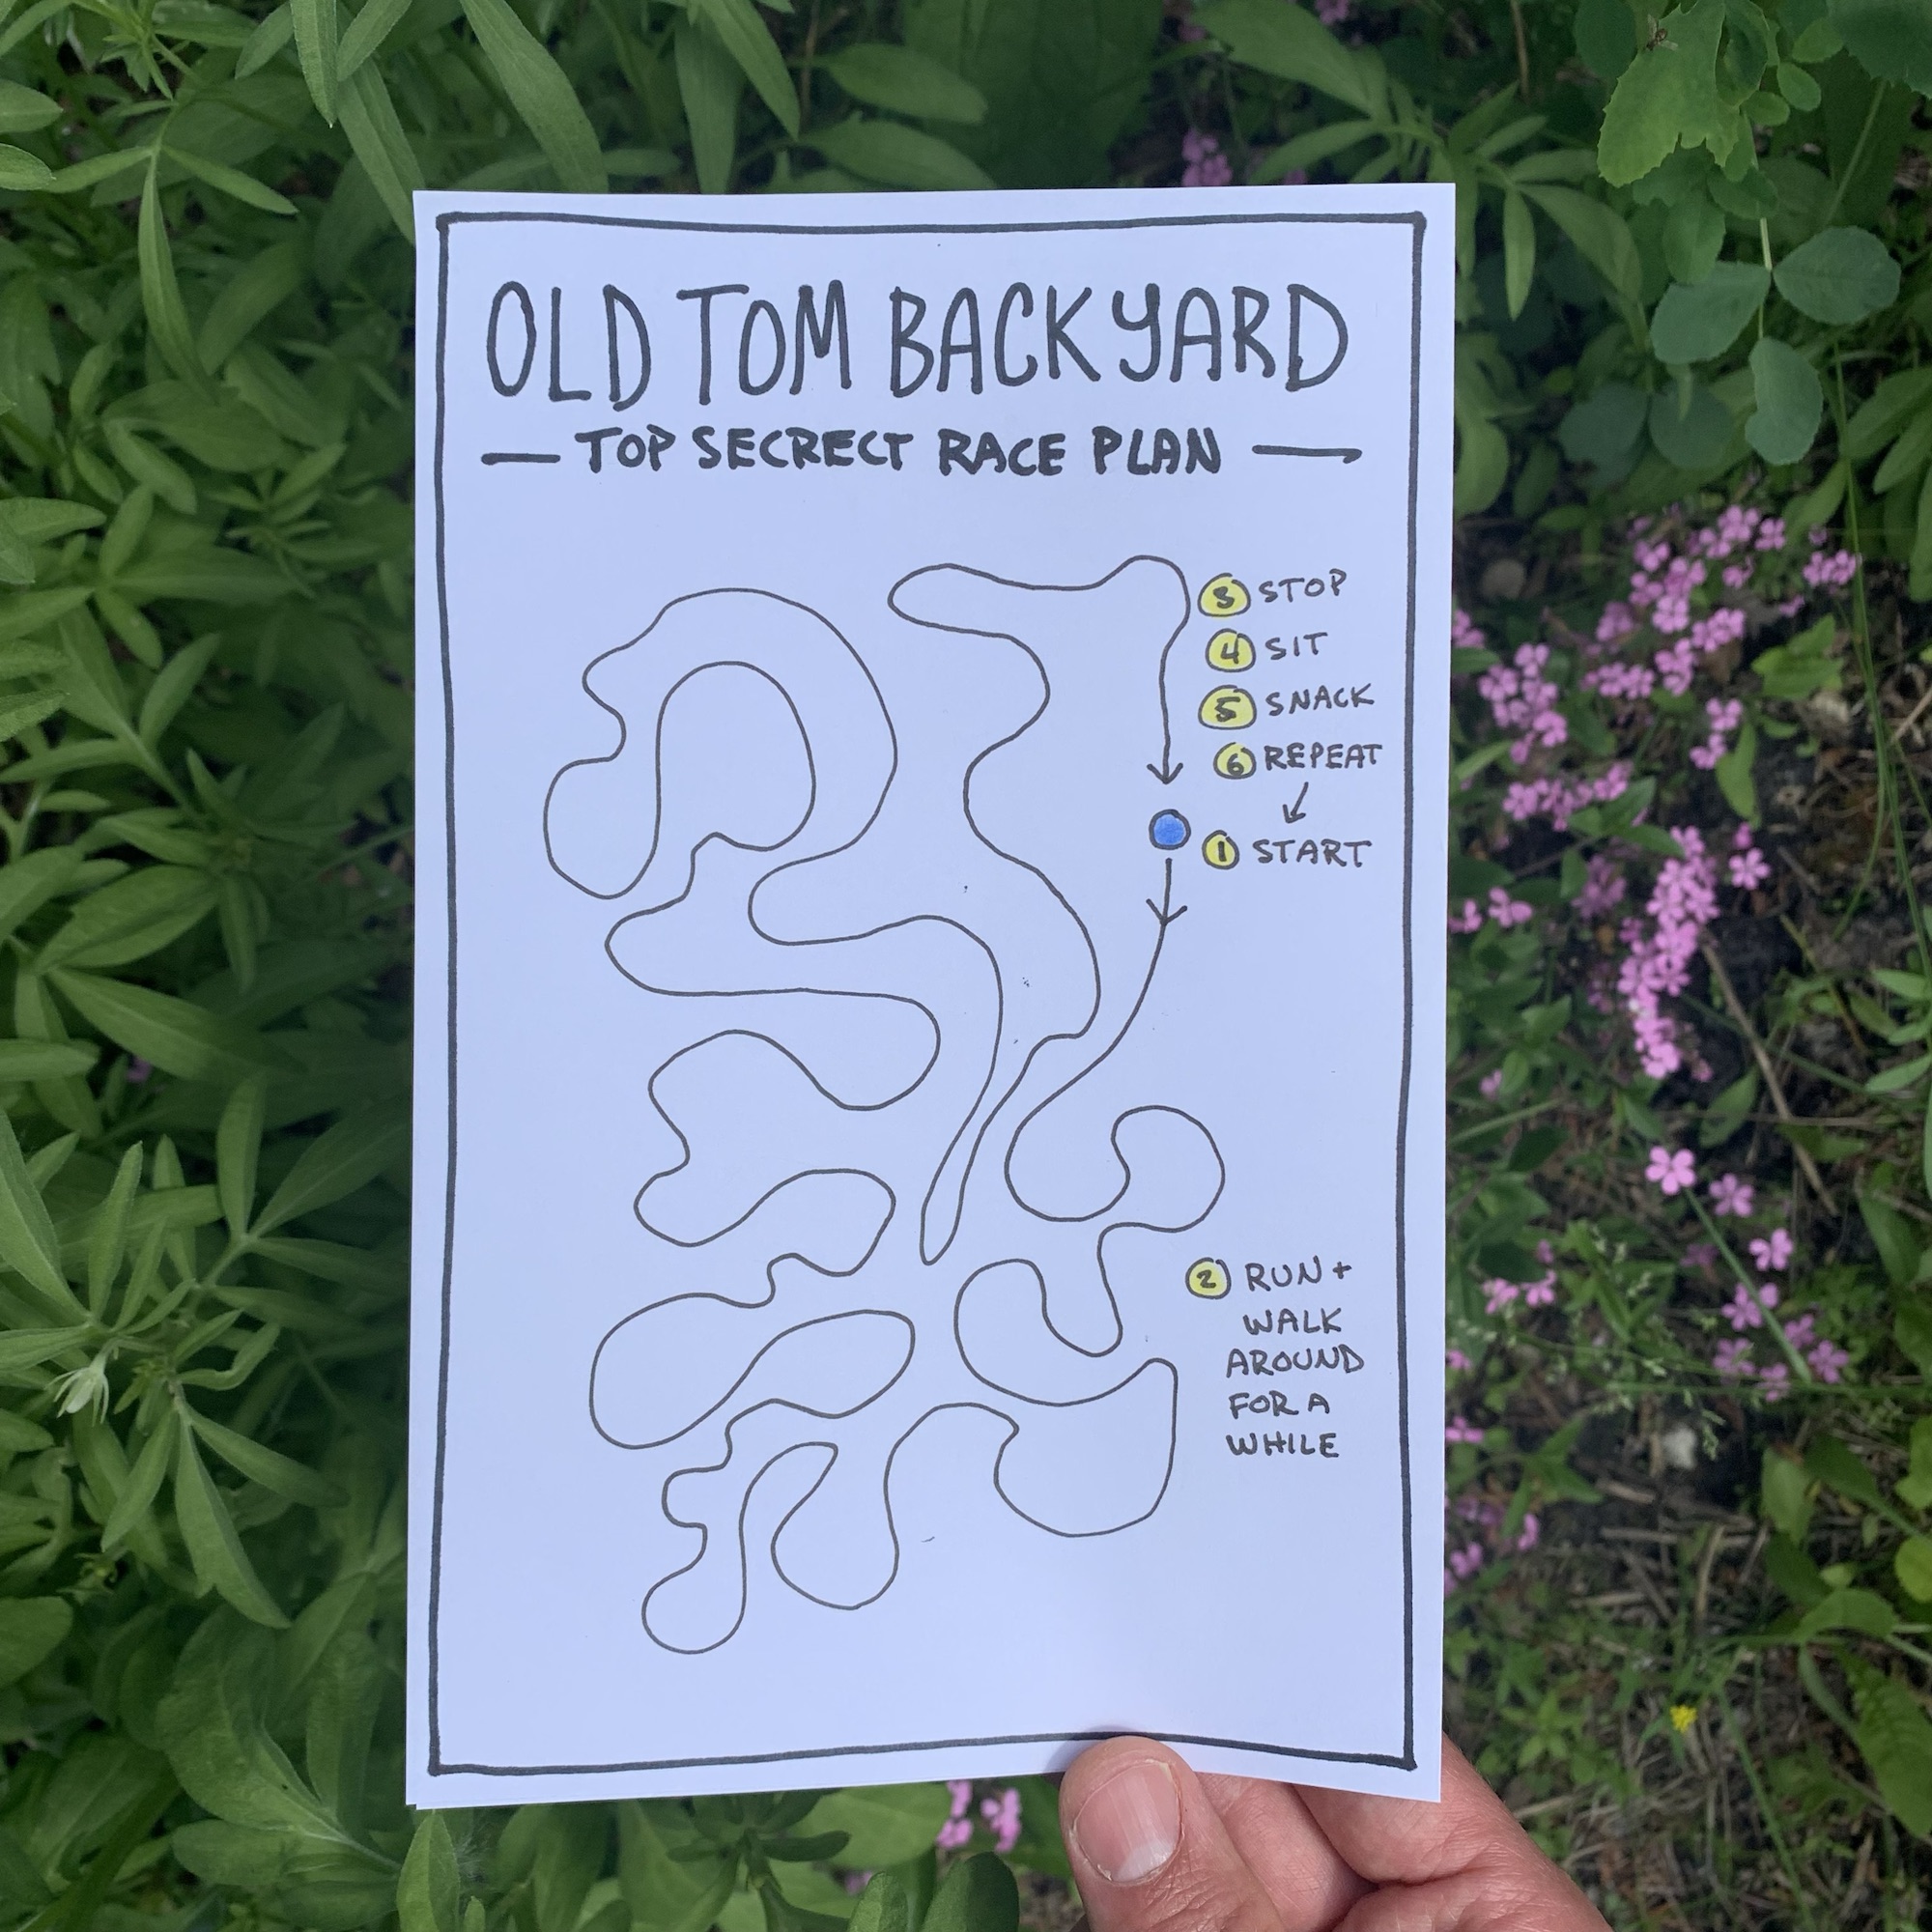 OLD TOM BACKYARD
— TOP SECRECT RACE PLAN —
3 STOP
4 SIT
5 SNACK
6 REPEAT
1 START
2 RUN +
WALK
AROUND
FOR A
WHILE